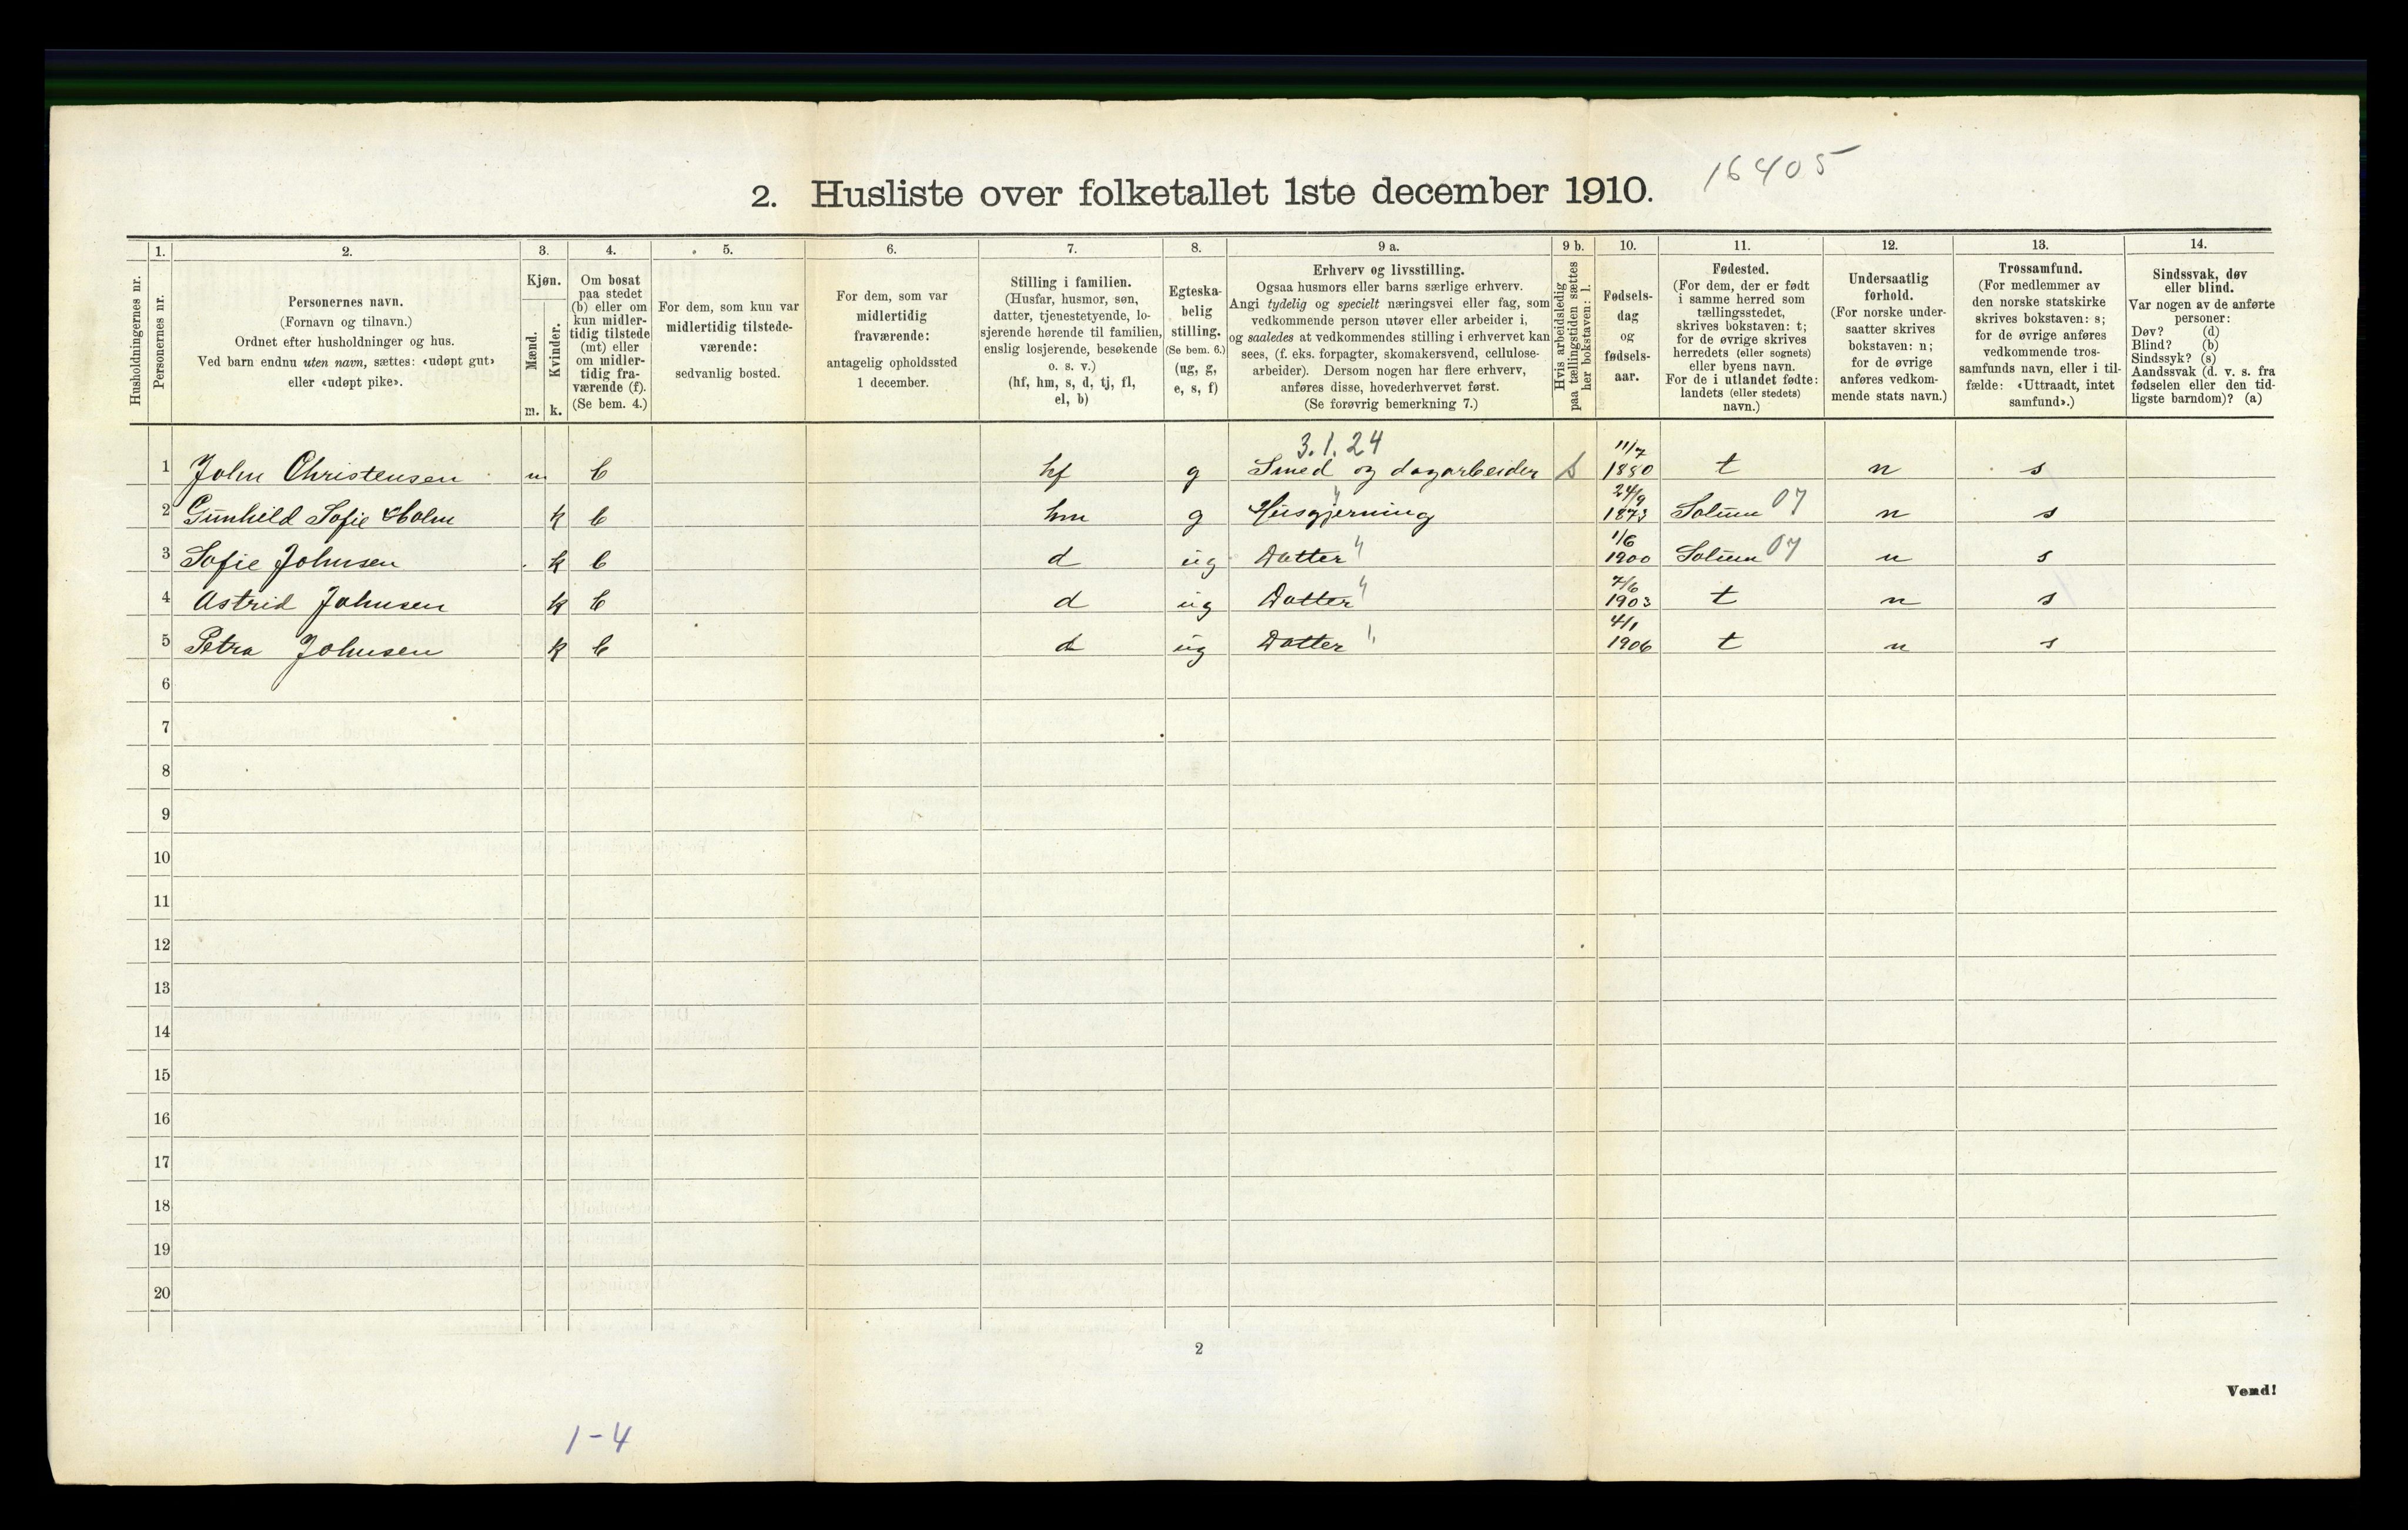 16405
2. Husliste over folketallet 1ste december 1910.
1. 2. 3. 4. 5. 6. 7. 8. 9 a. 9 b. 10. 11. 12. 13. 14.
Husholdningernes nr.
Personernes nr.
Personernes navn.
(Fornavn og tilnavn.)
Ordnet efter husholdninger og hus.
Ved barn endnu uten navn, sættes: «udøpt gut»
eller «udøpt pike».
Kjøn.
Mænd.
Kvinder.
m. k.
Om bosat
paa stedet
(b) eller om
kun midler-
tidig tilstede
(mt) eller
om midler-
tidig fra-
værende (f).
(Se bem. 4.)
For dem, som kun var
midlertidig tilstede-
værende:
sedvanlig bosted.
For dem, som var
midlertidig
fraværende:
antagelig opholdssted
1 december.
Stilling i familien.
(Husfar, husmor, søn,
datter, tjenestetyende, lo-
sjerende hørende til familien,
enslig losjerende, besøkende
o. s. v.)
(hf, hm, s, d, tj, fl,
el, b)
Egteska-
belig
stilling.
(Se bem. 6.)
(ug, g,
e, s, f)
Erhverv og livsstilling.
Ogsaa husmors eller barns særlige erhverv.
Angi tydelig og specielt næringsvei eller fag, som
vedkommende person utøver eller arbeider i,
og saaledes at vedkommendes stilling i erhvervet kan
sees, (f. eks. forpagter, skomakersvend, cellulose-
arbeider). Dersom nogen har flere erhverv,
anføres disse, hovederhvervet først.
(Se forøvrig bemerkning 7.)
Hvis arbeidsledig
paa tællingstiden sættes
her bokstaven: l.
Fødsels-
dag
og
fødsels-
aar.
Fødested.
(For dem, der er født
i samme herred som
tællingsstedet,
skrives bokstaven: t;
for de øvrige skrives
herredets (eller sognets)
eller byens navn.
For de i utlandet fødte:
landets (eller stedets)
navn.)
Undersaatlig
forhold.
(For norske under-
saatter skrives
bokstaven: n;
for de øvrige
anføres vedkom-
mende stats navn.)
Trossamfund.
(For medlemmer av
den norske statskirke
skrives bokstaven: s;
for de øvrige anføres
vedkommende tros-
samfunds navn, eller i til-
fælde: «Uttraadt, intet
samfund».)
Sindssvak, døv
eller blind.
Var nogen av de anførte
personer:
Døv? (d)
Blind? (b)
Sindssyk? (s)
Aandssvak (d. v. s. fra
fødselen eller den tid-
ligste barndom)? (a)
3.1.24 11/7
1 John Christensen m b hf g Smed og dagarbeider 1880 t n s
24/9
2 Gunhild Sofie Holm k b hm g Husgjerning 1873 Solum 07 n s
1/6
3 Sofie Johnsen k b d ug Datter 1900 Solum 07 n s
7/6
4 Astrid Johnsen k b d ug Datter 1903 t n s
4/1
5 Petra Johnsen k b d ug Datter 1906 t n s
6
7
8
9
10
11
12
13
14
15
16
17
18
19
20
2
Vend!
1-4